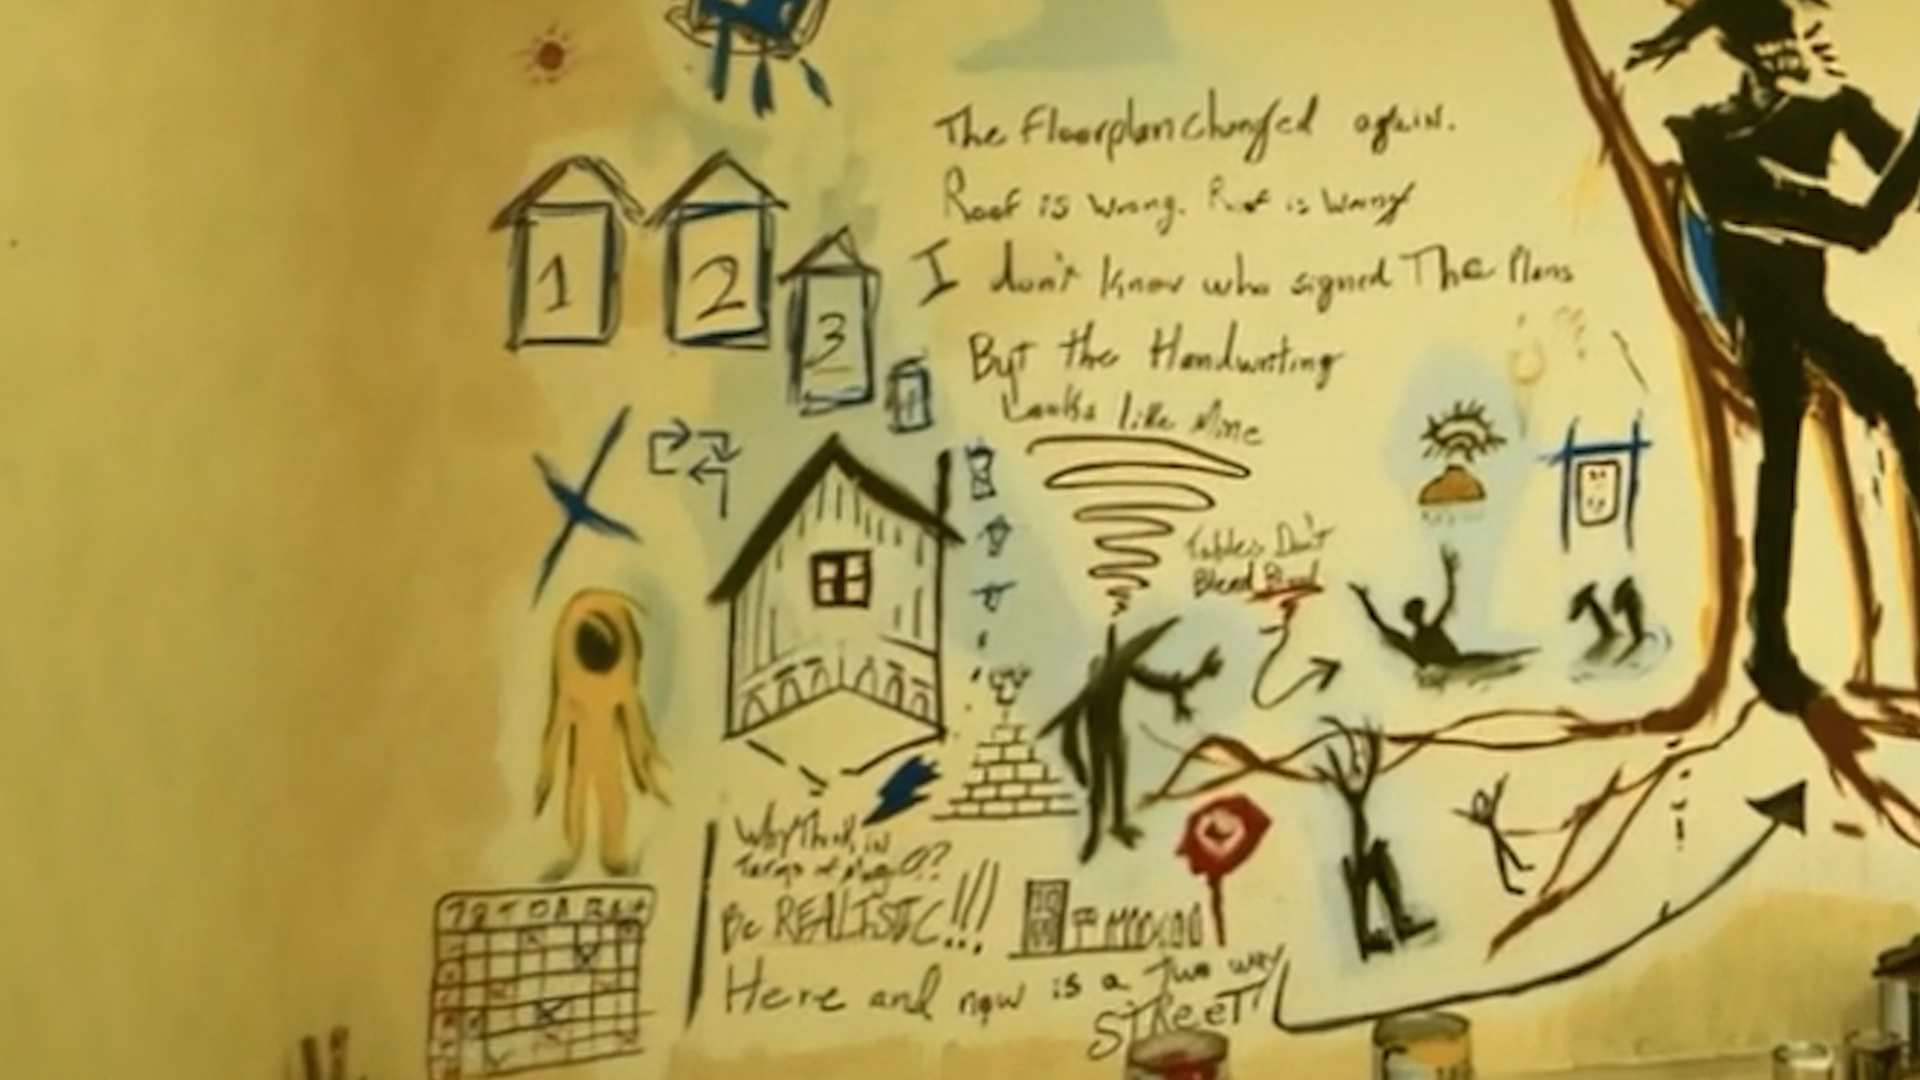 The Floorplan changed again.
Roof is wrong. Roof is wrong
I don't know who signed The Plans
But the Handwriting
Looks like Mine
1
2
3
Tables Don't
Bleed Blood
Why Think in
Terms of Mag
Be REALISTIC!!!
Here and now is a Two way
STREET!